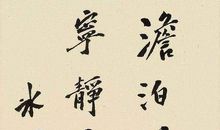 澹泊
寧靜
水